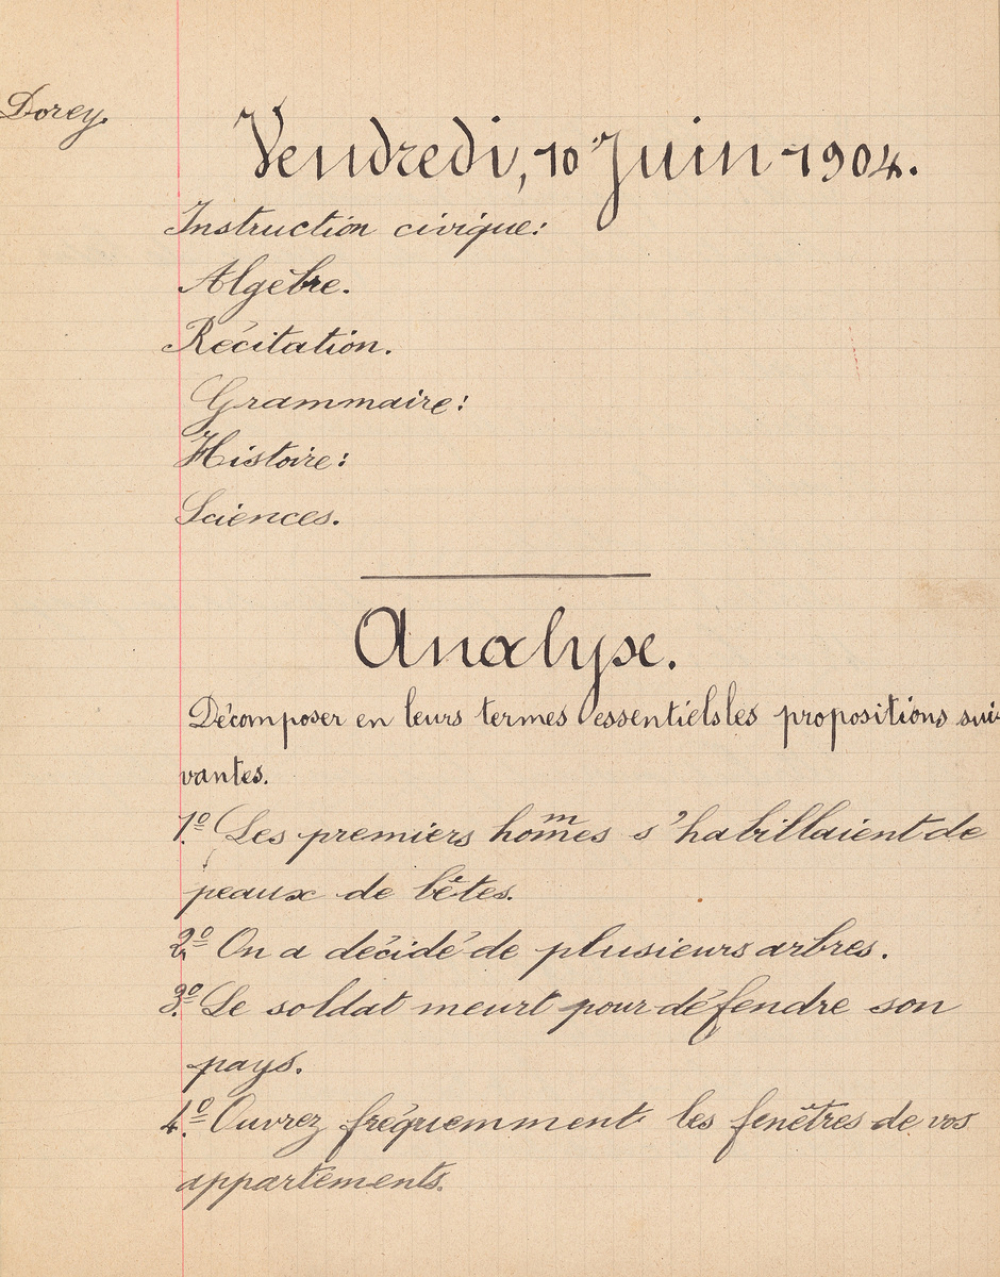 Dorey.
Vendredi, 10 Juin 1904.
Instruction civique:
Algèbre.
Récitation.
Grammaire:
Histoire:
Sciences.
Analyse.
Décomposer en leurs termes essentiels les propositions sui-
vantes.
1º. Les premiers hommes s'habillaient de
peaux de bêtes.
2º On a décidé de plusieurs arbres.
3º. Le soldat meurt pour défendre son
pays.
4º. Ouvrez fréquemment les fenêtres de vos
appartements.